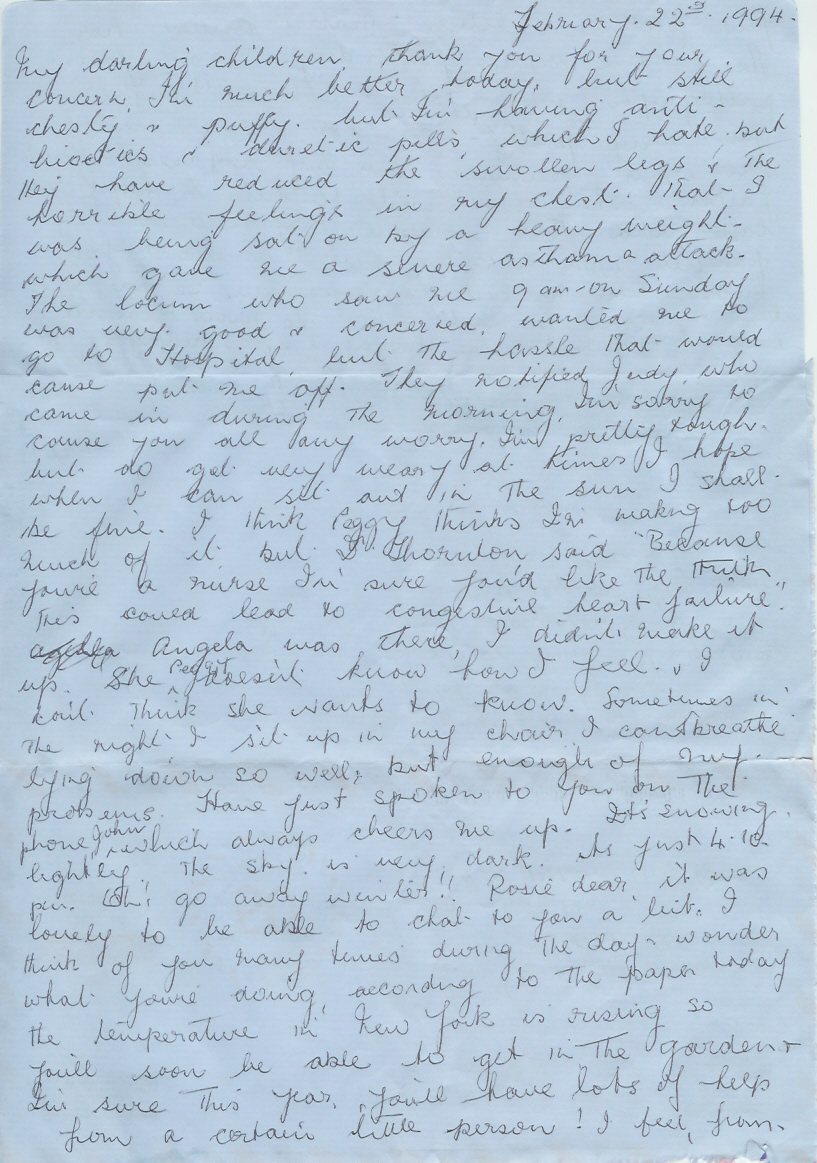 February. 22nd. 1994.
My darling children, thank you for your
concern, I'm much better today, but still
chesty & puffy. but I'm having anti-
biotics & diuretic pills, which I hate but
they have reduced the swollen legs & the
horrible feelings in my chest. That I
was being sat on by a heavy weight.
which gave me a severe asthama attack.
The locum who saw me 9 am-on Sunday
was very good & concerned, wanted me to
go to Hospital, but the hassle that would
cause put me off. They notified Judy, who
came in during the morning, I'm sorry to
cause you all any worry. I'm pretty tough.
but do get very weary at times I hope
when I can sit out in the sun I shall.
be fine. I think Peggy thinks I'm makng too
much of it but Dr Thornton said "Because
you're a nurse I'm sure you'd like the truth
This could lead to congestive heart failure."
Angela was there, I didn't make it
up. She Peggy doesn't know how I feel. & I
don't think she wants to know. Sometimes in
the night I sit up in my chair I can't breathe
lying down so well, but enough of my.
problems. Have just spoken to you on the
phone John, which always cheers me up. It's snowing
lightly. The sky is very dark. its just 4.10.
pm. Oh! go away winter!! Rosie dear it was
lovely to be able to chat to you a bit. I
think of you many times during the day & wonder
what you're doing, according to the paper today
the temperature in New York is rising so
you'll soon be able to get in the garden &
I'm sure this year, you'll have lots of help
from a certain little person! I feel, from.